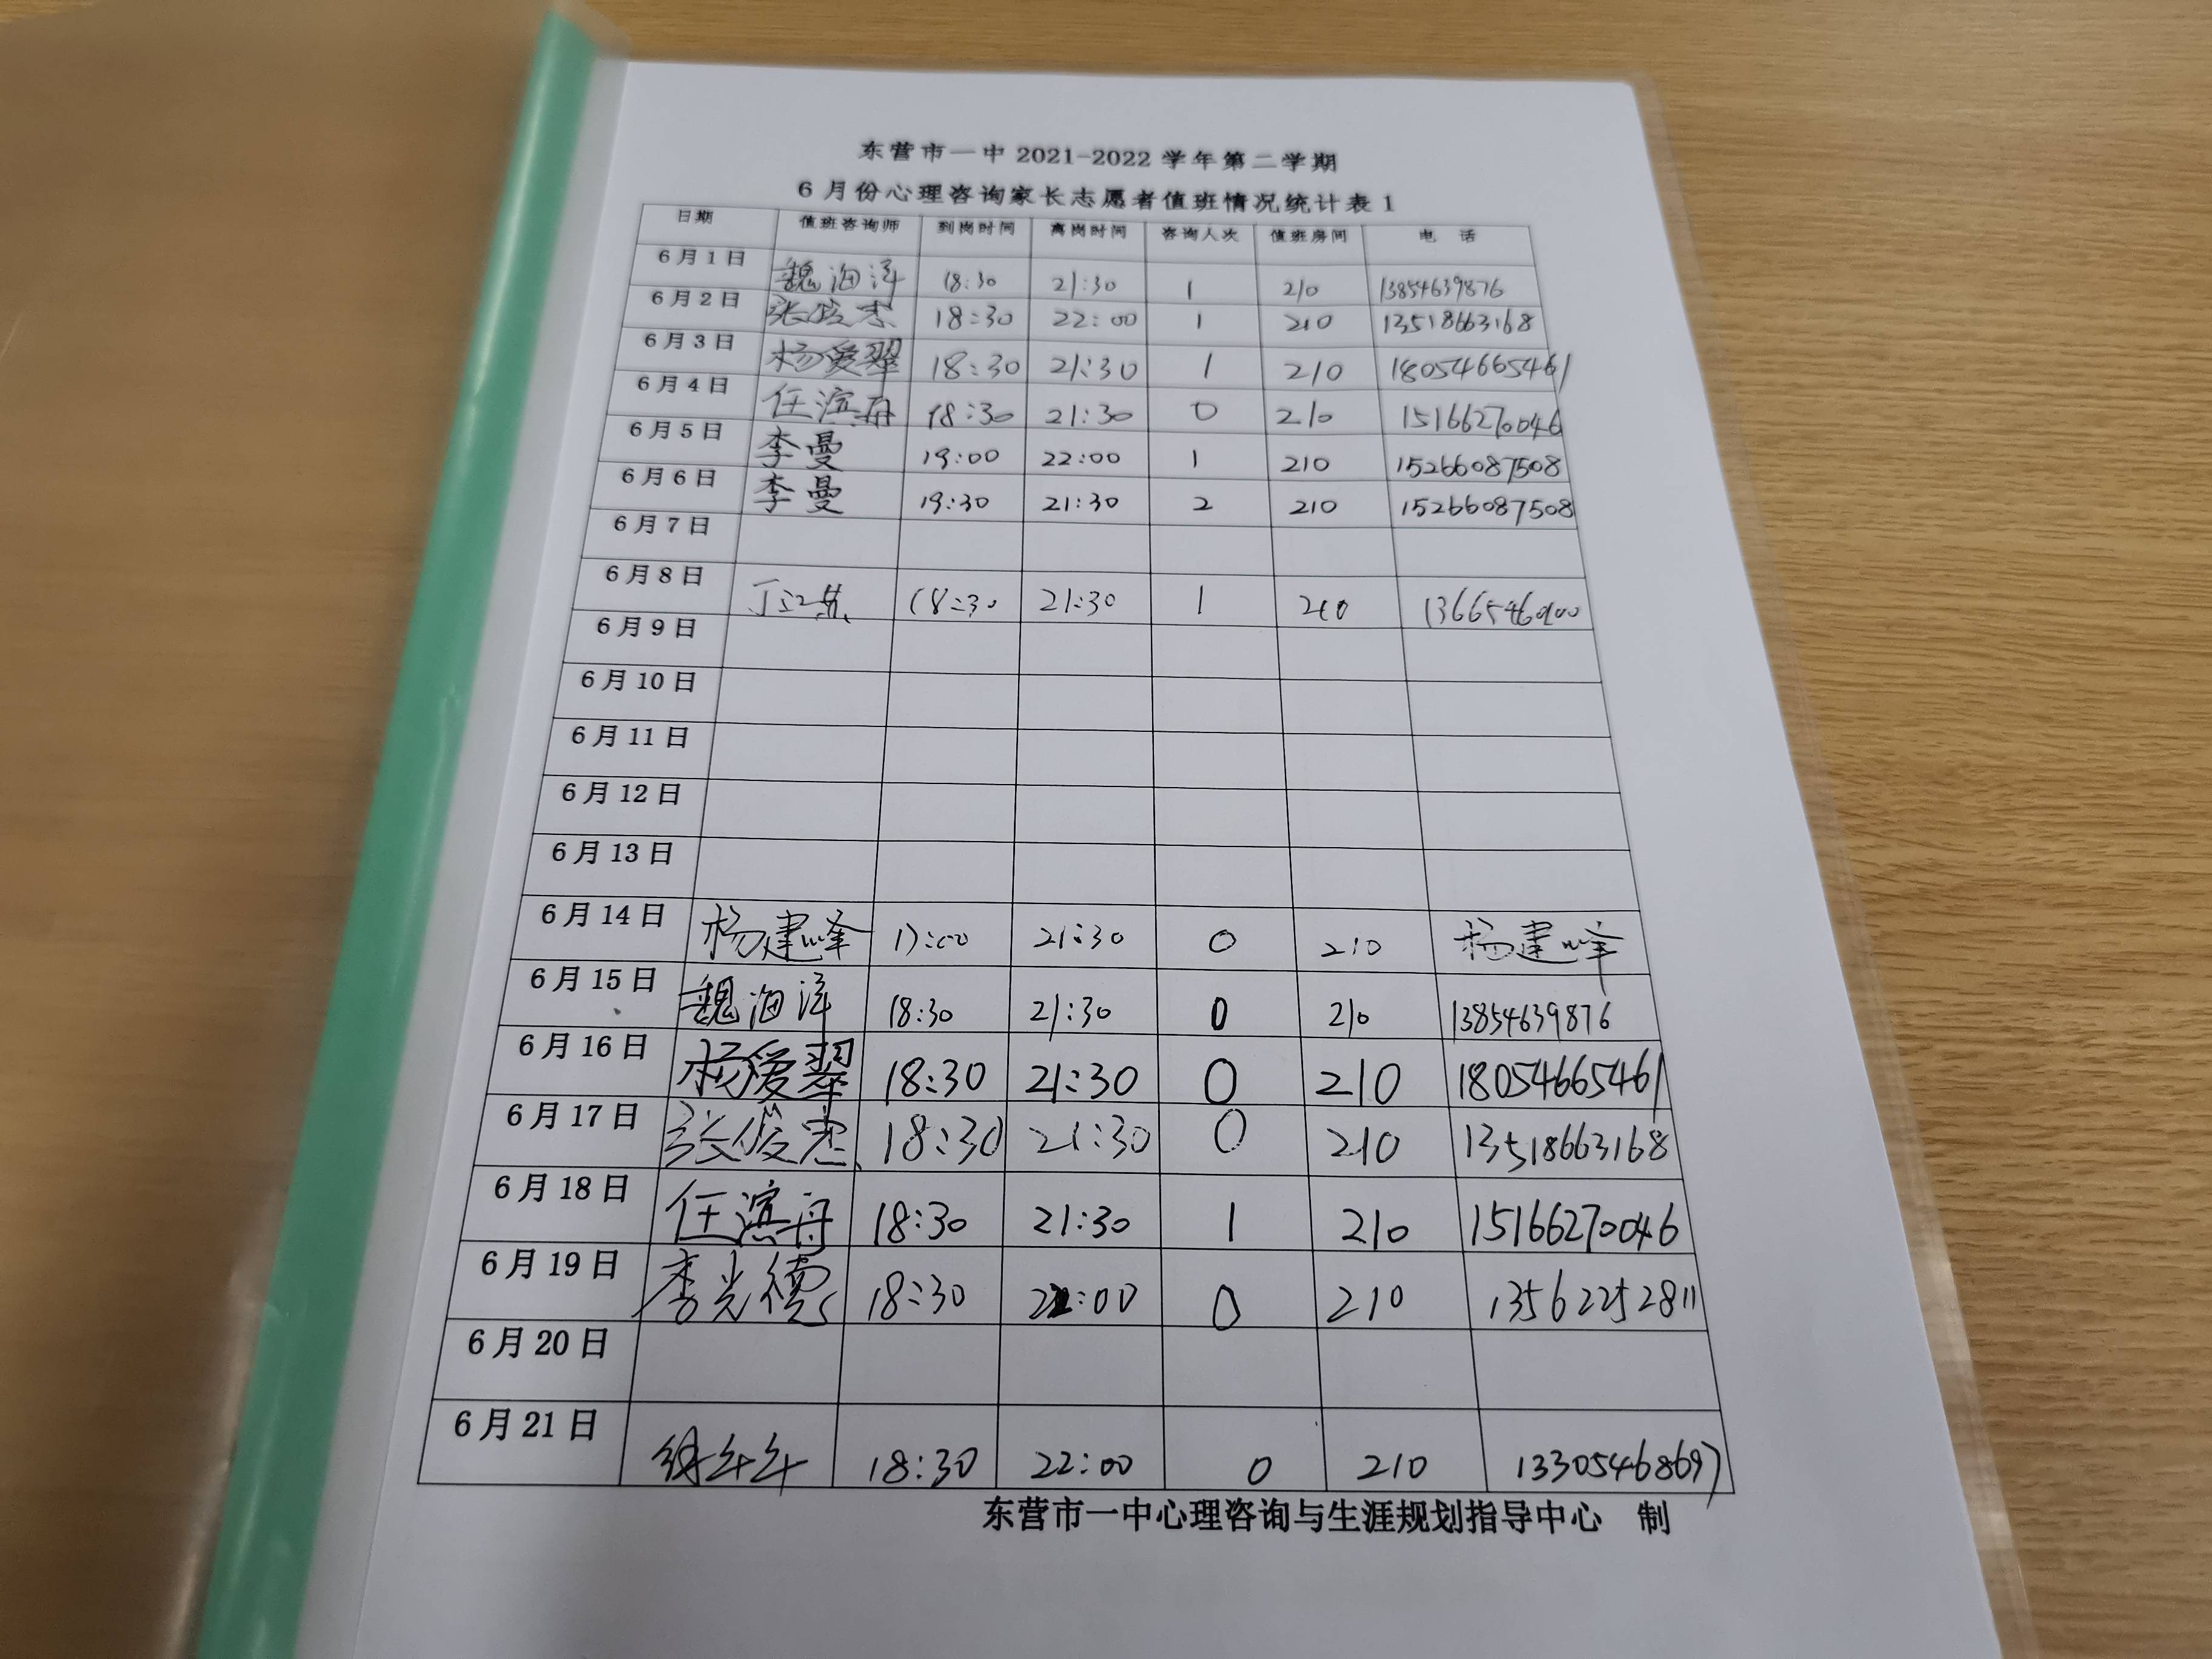 东营市一中 2021-2022 学年第二学期
6 月份心理咨询家长志愿者值班情况统计表 1
日期 值班咨询师 到岗时间 离岗时间 咨询人次 值班房间 电 话
6 月 1 日 魏海洋 18:30 21:30 1 210 13854639876
6 月 2 日 张俊杰 18:30 22:00 1 210 13518663168
6 月 3 日 杨爱翠 18:30 21:30 1 210 18054665461
6 月 4 日 任滨舟 18:30 21:30 0 210 15166270046
6 月 5 日 李曼 19:00 22:00 1 210 15266087508
6 月 6 日 李曼 19:30 21:30 2 210 15266087508
6 月 7 日
6 月 8 日 丁 18:30 21:30 1 210
6 月 9 日
6 月 10 日
6 月 11 日
6 月 12 日
6 月 13 日
6 月 14 日 杨建峰 17:00 21:30 0 210 杨建峰
6 月 15 日 魏海洋 18:30 21:30 0 210 13854639876
6 月 16 日 杨爱翠 18:30 21:30 0 210 18054665461
6 月 17 日 张俊 18:30 21:30 0 210 13518663168
6 月 18 日 任滨舟 18:30 21:30 1 210 15166270046
6 月 19 日 李光德 18:30 22:00 0 210 13562252811
6 月 20 日
6 月 21 日 18:30 22:00 0 210 13305468697
东营市一中心理咨询与生涯规划指导中心 制